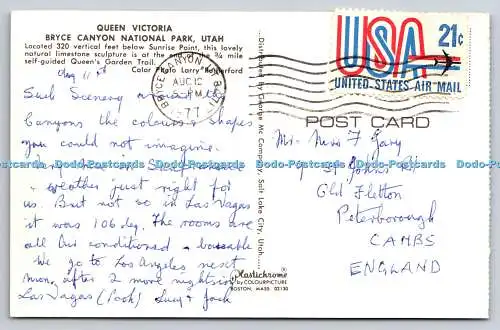 QUEEN VICTORIA
BRYCE CANYON NATIONAL PARK, UTAH
Located 320 vertical feet below Sunrise Point, this lovely
natural limestone sculpture is at the end of the ¾ mile
self-guided Queen's Garden Trail.
Color Photo Larry
Aug 11th
Such Scenery and such
Canyons the colours & shapes
you could not imagine.
weather just right for
us. But not so in Las Vagas
it was 106 deg. The rooms are
all air conditioned
We go to Los Angeles next
after 2 more nights in
Las Vagas (Pooh) Lucy & Jack
Distributed by Mc Company, Salt Lake City, Utah
Plastichrome ®
by COLOURPICTURE
BOSTON, MASS 02130
BRYCE CANYON
AUG 12
PM
77
USA 21c
UNITED STATES AIR MAIL
POST CARD
Mr. Mrs F Gary
St Johns Rd
Old Fletton
Peterborough
CAMBS
ENGLAND
Dodo-Postcards Dodo-Postcards Dodo-Postcards Dodo-Postcards